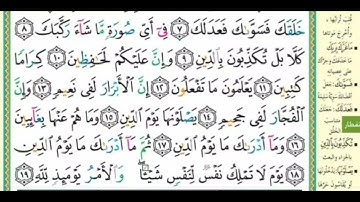 خَلَقَكَ فَسَوَّىٰكَ فَعَدَلَكَ ٧ فِىٓ أَىِّ صُورَةٍ مَّا شَآءَ رَكَّبَكَ ٨
كَلَّا بَلْ تُكَذِّبُونَ بِٱلدِّينِ ٩ وَإِنَّ عَلَيْكُمْ لَحَٰفِظِينَ ١٠ كِرَامًا
كَٰتِبِينَ ١١ يَعْلَمُونَ مَا تَفْعَلُونَ ١٢ إِنَّ ٱلْأَبْرَارَ لَفِى نَعِيمٍ ١٣ وَإِنَّ
ٱلْفُجَّارَ لَفِى جَحِيمٍ ١٤ يَصْلَوْنَهَا يَوْمَ ٱلدِّينِ ١٥ وَمَا هُمْ عَنْهَا بِغَآئِبِينَ
١٦ وَمَآ أَدْرَىٰكَ مَا يَوْمُ ٱلدِّينِ ١٧ ثُمَّ مَآ أَدْرَىٰكَ مَا يَوْمُ ٱلدِّينِ
١٨ يَوْمَ لَا تَمْلِكُ نَفْسٌ لِّنَفْسٍ شَيْـًٔا وَٱلْأَمْرُ يَوْمَئِذٍ لِّلَّهِ ١٩